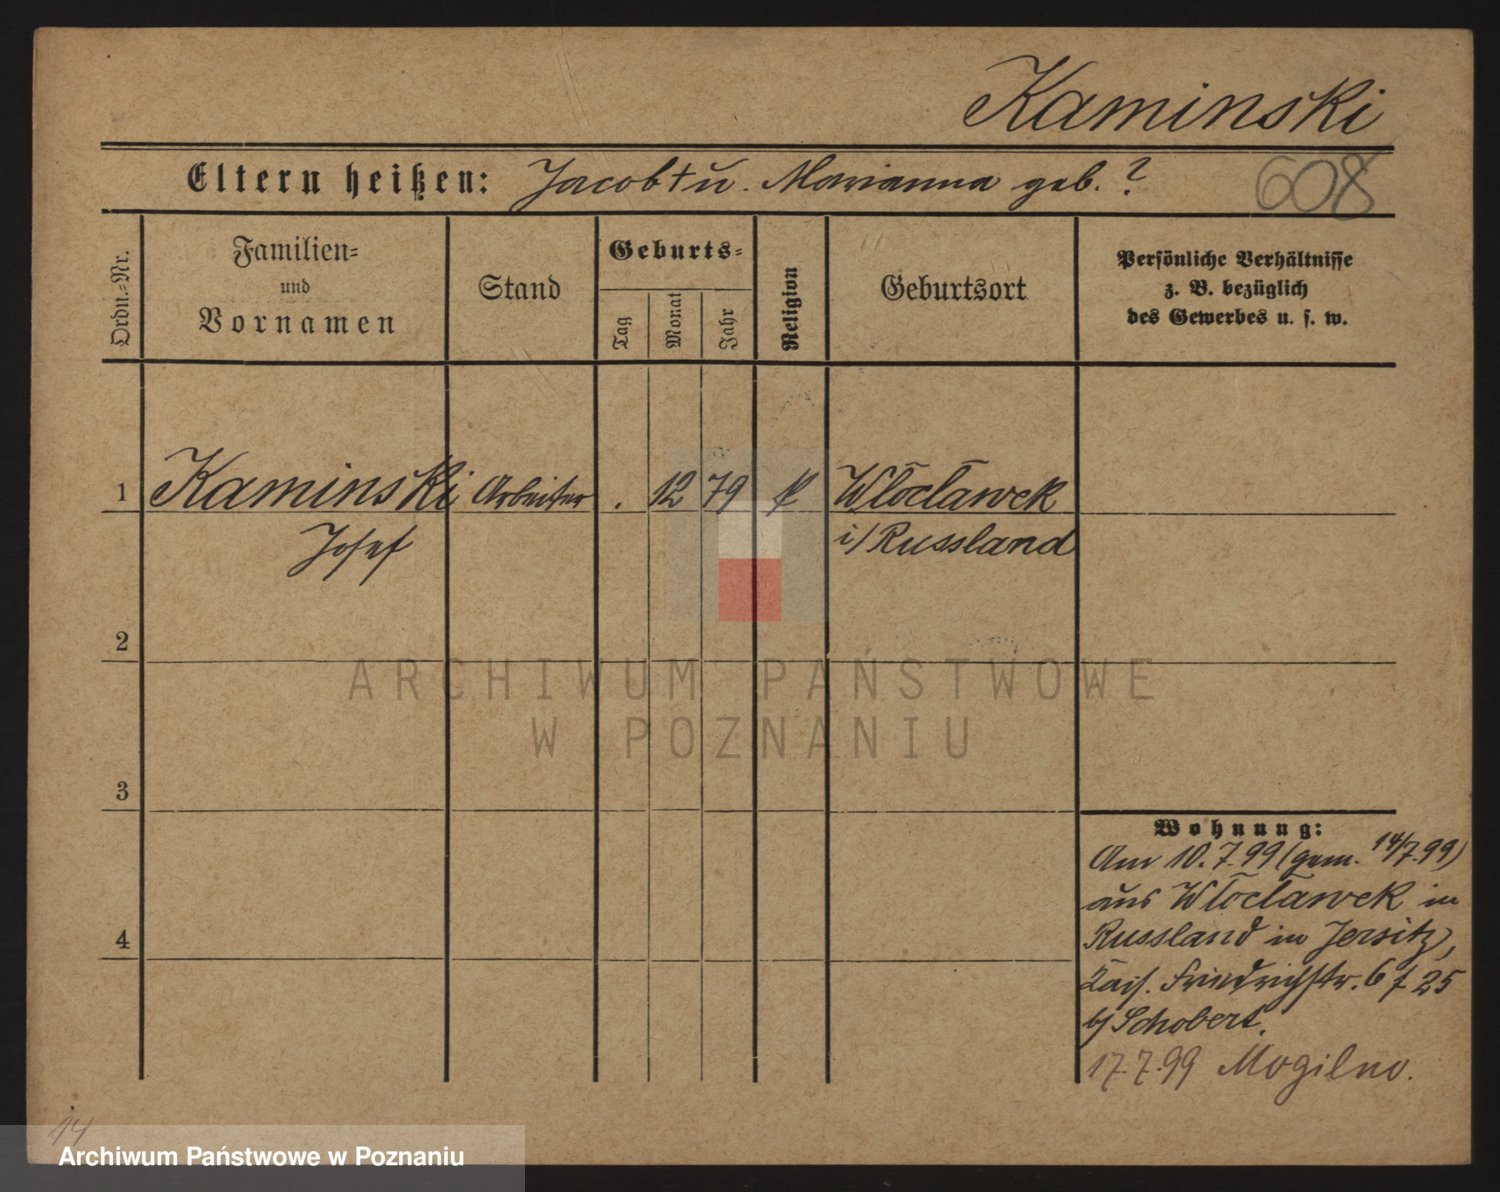 Kaminski
Eltern heißen: Jacob † u. Marianna geb. ?
608
Ordn.=Nr.
Familien=
und
Vornamen
Stand
Geburts=
Tag
Monat
Jahr
Religion
Geburtsort
Persönliche Verhältnisse
z. B. bezüglich
des Gewerbes u. s. w.
1 Kaminski Arbeiter . 12 79 k. Wloclawek
Josef i/ Russland
2
ARCHIWUM PAŃSTWOWE
W POZNANIU
3
Wohnung:
Am 10.7.99 (gem. 14/7.99)
aus Wloclawek in
Russland in Jersitz,
4
Kais. Friedrichstr. 6 f 25
b/ Schobert.
17.7.99 Mogilno.
14
Archiwum Państwowe w Poznaniu